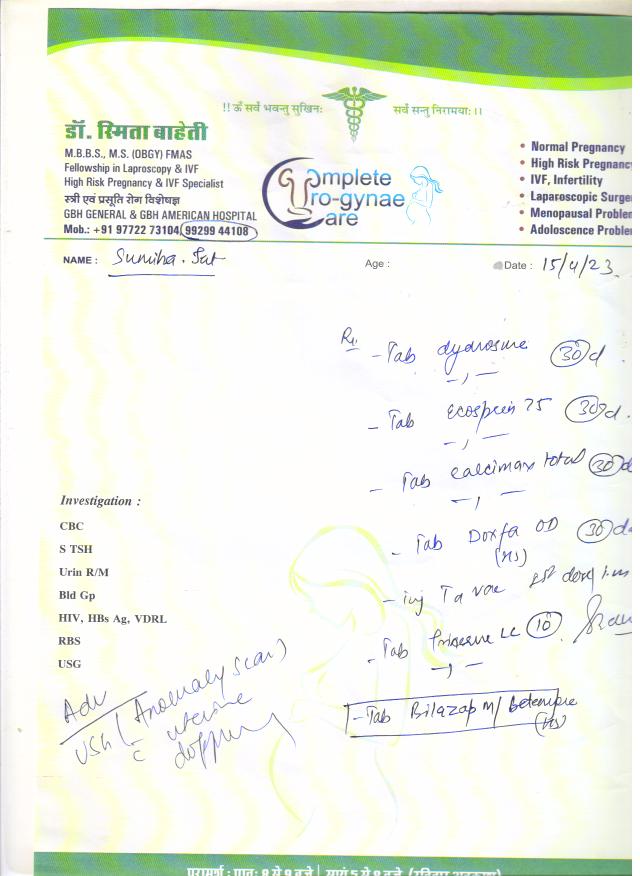 !! ॐ सर्वे भवन्तु सुखिनः सर्वे सन्तु निरामयाः ।।
डॉ. स्मिता बाहेती
M.B.B.S., M.S. (OBGY) FMAS
Fellowship in Laproscopy & IVF
High Risk Pregnancy & IVF Specialist
स्त्री एवं प्रसूति रोग विशेषज्ञ
GBH GENERAL & GBH AMERICAN HOSPITAL
Mob.: +91 97722 73104, 99299 44108
Complete
Uro-gynae
Care
• Normal Pregnancy
• High Risk Pregnancy
• IVF, Infertility
• Laparoscopic Surge
• Menopausal Problem
• Adoloscence Problem
NAME :
Age :
Date : 15/4/23
Rx
- Tab 30 d
- , -
- Tab Ecosprin 75 30 d.
- , -
- Tab calcimax total 30 d
- , -
- Tab Doxfa OD 30 d
(HS)
- inj Ta vac 1st dose i.m
- Tab LC 10
- , -
- Tab Bilazap M/
(HS)
Investigation :
CBC
S TSH
Urin R/M
Bld Gp
HIV, HBs Ag, VDRL
RBS
USG
Adv
USG (Anomaly scan)
c̄ uterine